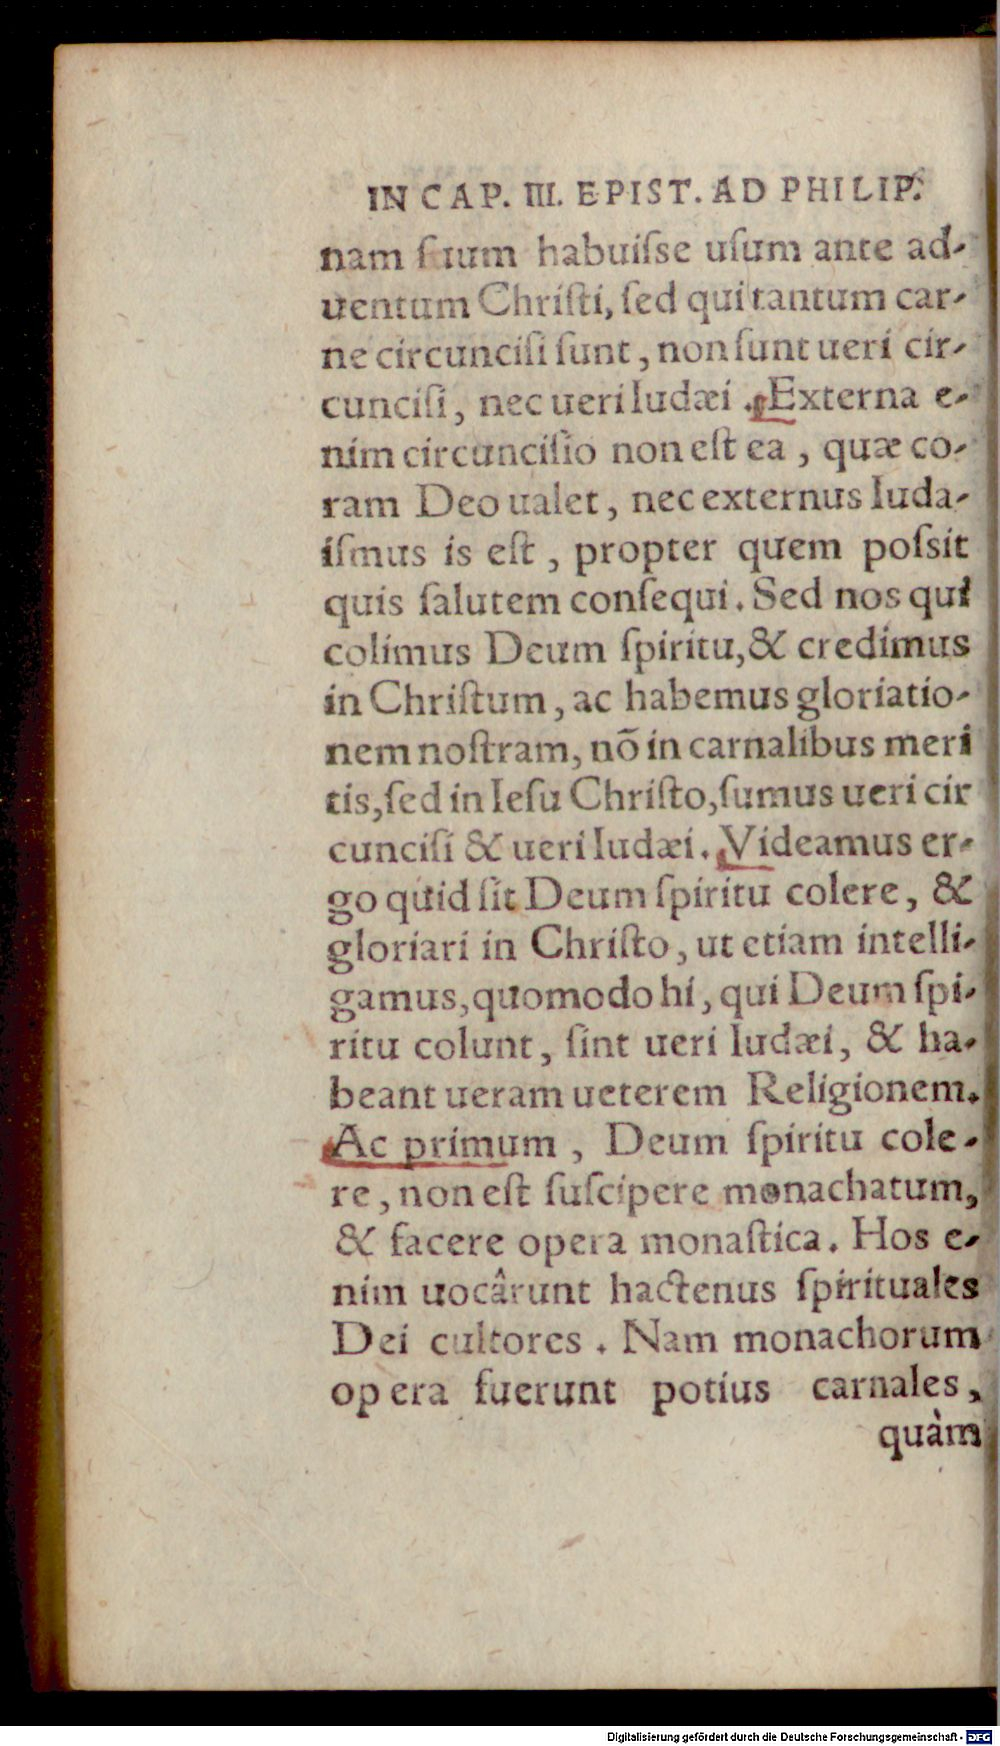 IN CAP. III. EPIST. AD PHILIP.
nam suum habuiſse uſum ante ad-
uentum Chriſti, ſed qui tantum car-
ne circunciſi ſunt, non ſunt ueri cir-
cunciſi, nec ueri Iudæi. Externa e-
nim circunciſio non eſt ea, quæ co-
ram Deo ualet, nec externus Iuda-
iſmus is eſt, propter quem poſsit
quis ſalutem conſequi. Sed nos qui
colimus Deum ſpiritu, & credimus
in Chriſtum, ac habemus gloriatio-
nem noſtram, nõ in carnalibus meri
tis, ſed in Ieſu Chriſto, ſumus ueri cir
cunciſi & ueri Iudæi. Videamus er-
go quid ſit Deum ſpiritu colere, &
gloriari in Chriſto, ut etiam intelli-
gamus, quomodo hi, qui Deum ſpi-
ritu colunt, ſint ueri Iudæi, & ha-
beant ueram ueterem Religionem.
Ac primum, Deum ſpiritu cole-
re, non eſt ſuſcipere monachatum,
& facere opera monaſtica. Hos e-
nim uocârunt hactenus ſpirituales
Dei cultores. Nam monachorum
opera fuerunt potius carnales,
quàm
Digitalisierung gefördert durch die Deutsche Forschungsgemeinschaft - DFG